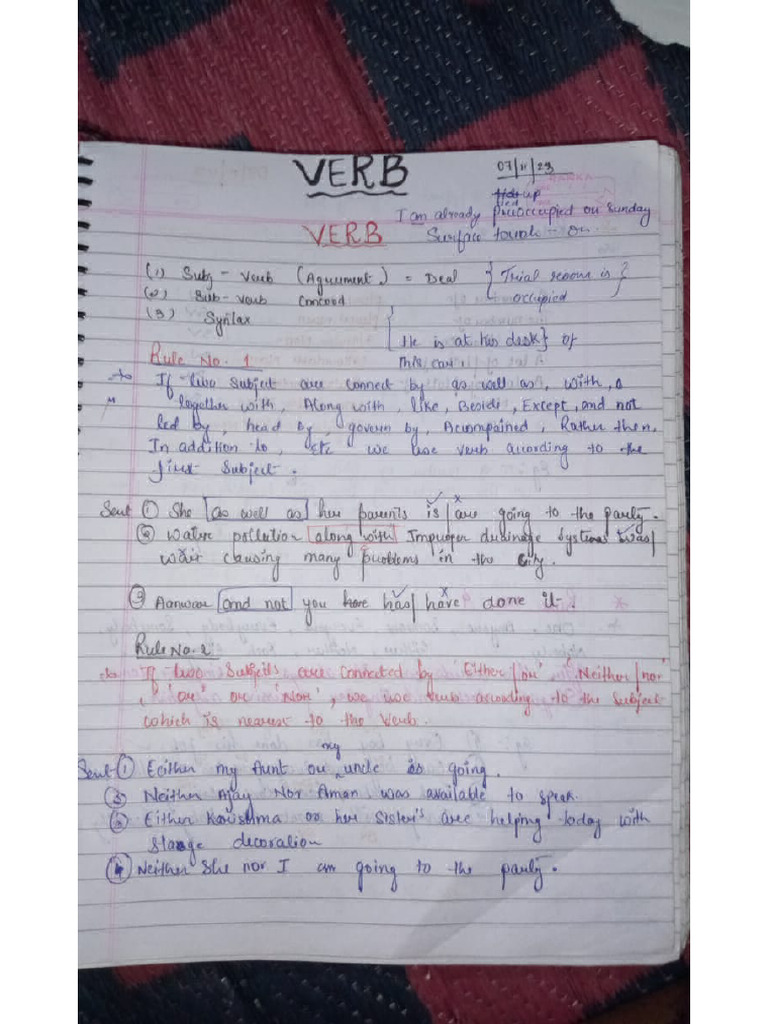 VERB
07/11/23
I am already preoccupied on Sunday
VERB Surface touch - on
(1) Subj - Verb (Agreement) = Deal { Trial room is }
(2) Sub - verb Concord occupied
(3) Syntax
{ He is at his desk } of
Rule No. 1 this case.
If two subject are connect by as well as, with,
together with, Along with, like, Beside, Except, and not
led by, head by, govern by, Accompained, Rather then,
In addition to, etc we use verb according to the
first subject.
Sent ① She as well as her parents is / are going to the party.
② Water pollution along with Improper drainage System was /
wair clausing many problems in the City.
③ Aanwar and not you has / have done it.
Rule No. 2
If two Subjects are connected by 'Either / or' 'Neither / nor'
, 'or' or 'Nor', we use verb acording to the Subject
which is nearest to the Verb.
my
Sent ① Eeither my Aunt or uncle is going.
③ Neither Ajay Nor Aman was available to speak.
② Either Karishma or her Sister's are helping today with
stage decoration
④ Neither She nor I am going to the party.